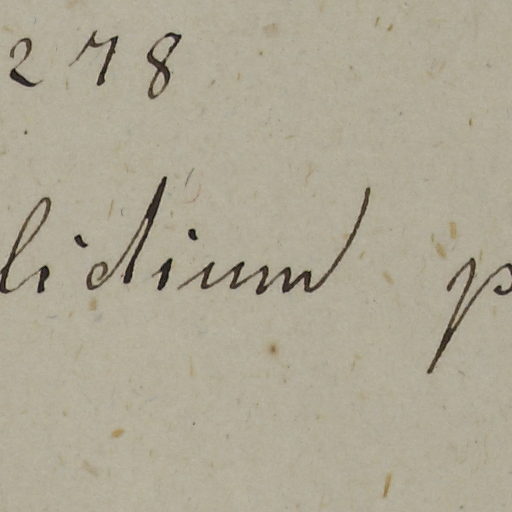 278
lidium p